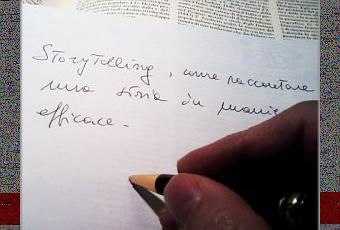 Storytelling, come raccontare
una storia in manie
efficace.